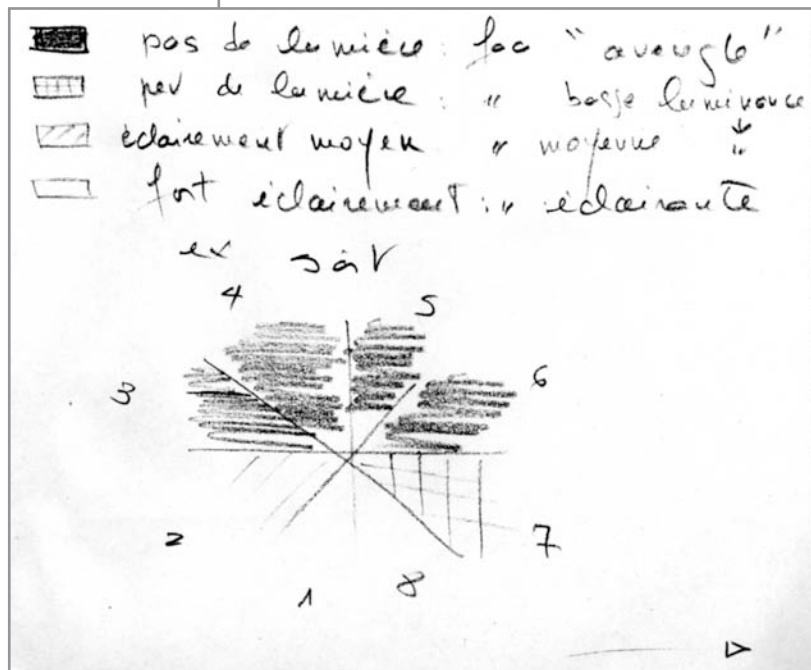 pas de lumière : fac " aveugle"
peu de lumière : " basse luminance
éclairement moyen " moyenne "
fort éclairement : " éclairante
ex soit
4 5
3 6
2 7
1 8